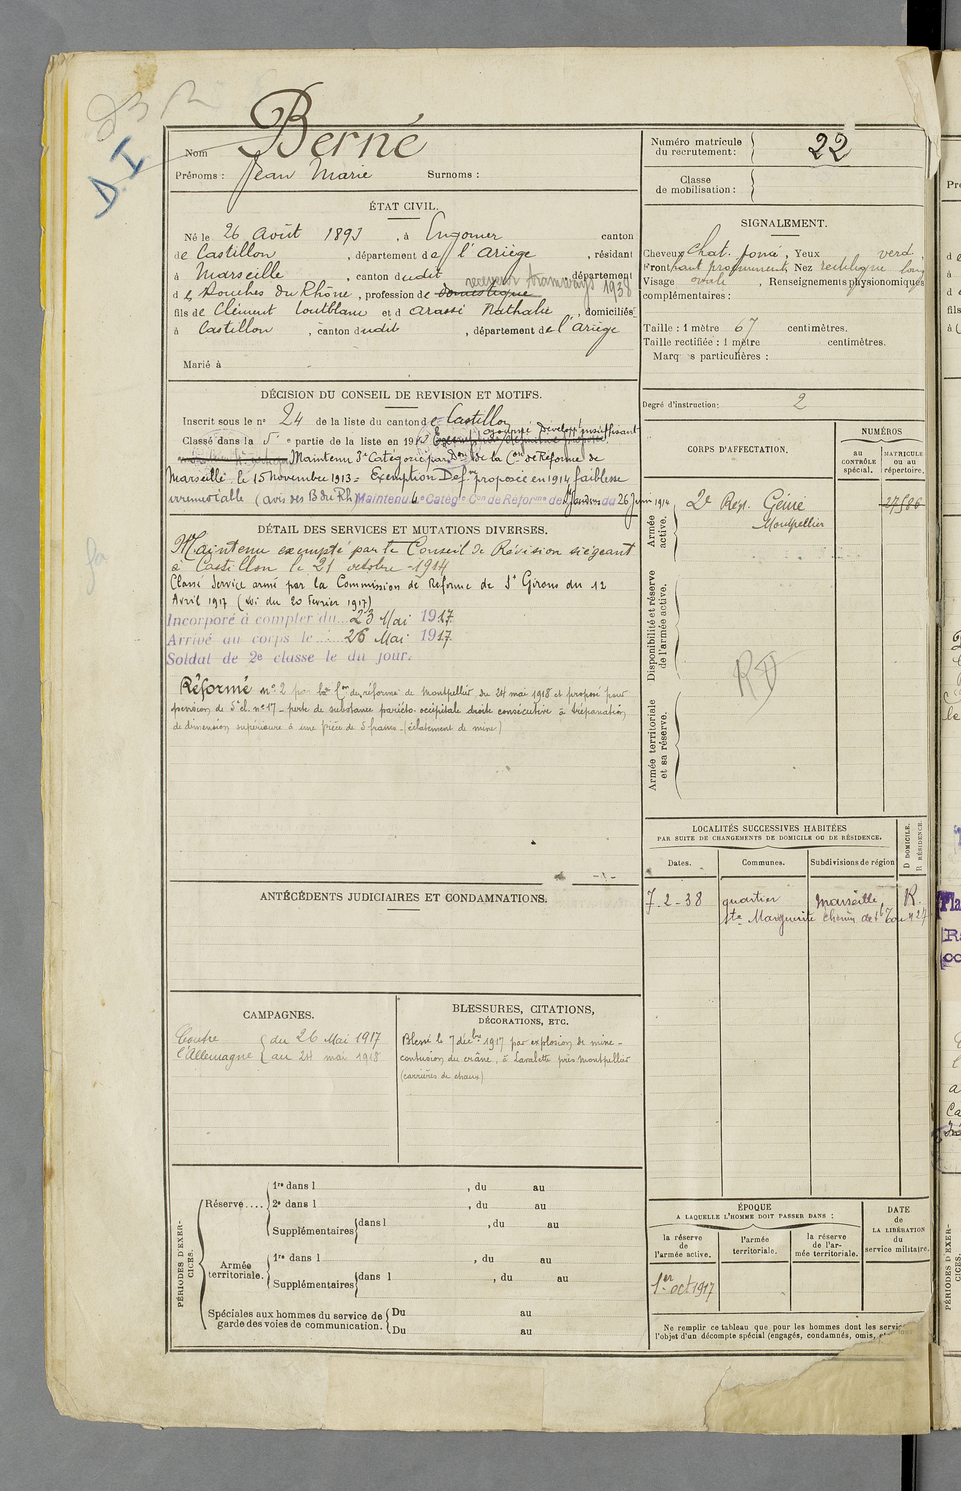 D. I
Nom Berné
Prénoms : Jean Marie Surnoms :
Numéro matricule du recrutement : 22
Classe de mobilisation :
ÉTAT CIVIL.
Né le 26 Août 1893, à Engomer canton
de Castillon, département de l'Ariège, résidant
à Marseille, canton dudit, département
receveur tramways 1938
d es Bouches du Rhône, profession de domestique
fils de Clément Toutblanc et d Arassé Nathalie, domiciliés
à Castillon, canton dudit, département de l'Ariège
Marié à
SIGNALEMENT.
Cheveux chat. foncé, Yeux verd,
Front haut proéminent, Nez rectiligne long
Visage ovale, Renseignements physionomiques
complémentaires :
Taille : 1 mètre 67 centimètres.
Taille rectifiée : 1 mètre centimètres.
Marques particulières :
Degré d'instruction : 2
DÉCISION DU CONSEIL DE REVISION ET MOTIFS.
Inscrit sous le nº 24 de la liste du canton de Castillon
Classé dans la 5e partie de la liste en 1913 ajourné Développt insuffisant
Maintenu 3e Catégorie par Don de la Con de Réforme de
Marseille le 15 novembre 1913 = Exemption Defve proposée en 1914 faiblesse
irrémédiable (avis des B du Rh) Maintenu 4e Catégie Con de Réforme de St Girons du 26 Juin 1914
DÉTAIL DES SERVICES ET MUTATIONS DIVERSES.
Maintenu exempté par le Conseil de Révision siégeant
à Castillon le 21 octobre 1914
Classé Service armé par la Commission de Réforme de St Girons du 12
Avril 1917 (Loi du 20 Février 1917)
Incorporé à compter du 23 Mai 1917
Arrivé au corps le 26 Mai 1917
Soldat de 2e classe le du jour.
Réformé nº 2 par la Con de réforme de Montpellier du 24 mai 1918 et proposé pour
pension de 5e cl. nº 17 - perte de substance pariéto-occipitale droite consécutive à trépanation
de dimension supérieure à une pièce de 5 francs. (éclatement de mine)
CORPS D'AFFECTATION.
NUMÉROS
au CONTRÔLE spécial.
MATRICULE ou au répertoire.
Armée active.
2e Regt Génie
Montpellier
27586
Disponibilité et réserve de l'armée active.
RD
Armée territoriale et sa réserve.
LOCALITÉS SUCCESSIVES HABITÉES
PAR SUITE DE CHANGEMENTS DE DOMICILE OU DE RÉSIDENCE.
Dates. Communes. Subdivisions de région D DOMICILE. R RÉSIDENCE.
7-2-38 quartier Marseille, R.
Ste Marguerite chemin de
ANTÉCÉDENTS JUDICIAIRES ET CONDAMNATIONS.
CAMPAGNES.
Contre l'Allemagne
du 26 Mai 1917
au 24 mai 1918
BLESSURES, CITATIONS,
DÉCORATIONS, ETC.
Blessé le 7 décbre 1917 par explosion de mine -
contusion du crâne, à Lavalette près Montpellier
(carrières de chaux)
PÉRIODES D'EXERCICES.
Réserve....
1re dans l , du au
2e dans l , du au
Supplémentaires dans l , du au
Armée territoriale.
1re dans l , du au
Supplémentaires dans l , du au
Spéciales aux hommes du service de garde des voies de communication.
Du au
Du au
ÉPOQUE
A LAQUELLE L'HOMME DOIT PASSER DANS :
la réserve de l'armée active.
l'armée territoriale.
la réserve de l'armée territoriale.
DATE de LA LIBÉRATION du service militaire.
1er oct 1917
Ne remplir ce tableau que pour les hommes dont les servic
l'objet d'un décompte spécial (engagés, condamnés, omis,